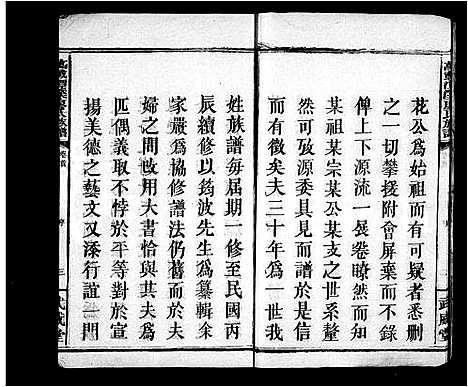 花公為始祖而有可疑者悉刪
之一切攀援附會屏棄而不錄
俾上下源流一展卷瞭然而知
某祖某宗某公某支之世系釐
而源委具見而譜於是
而有徵矣夫三十年為一世我
姓族譜每屆期一修至民國丙
辰續修以筠波先生為纂輯余
家嚴為協修譜法仍舊而於夫
婦之間改用大書特書其夫為
匹偶義取不悖於平等而於宣
揚美德之藝文又添行誼一門
卷首
序
三
武威堂